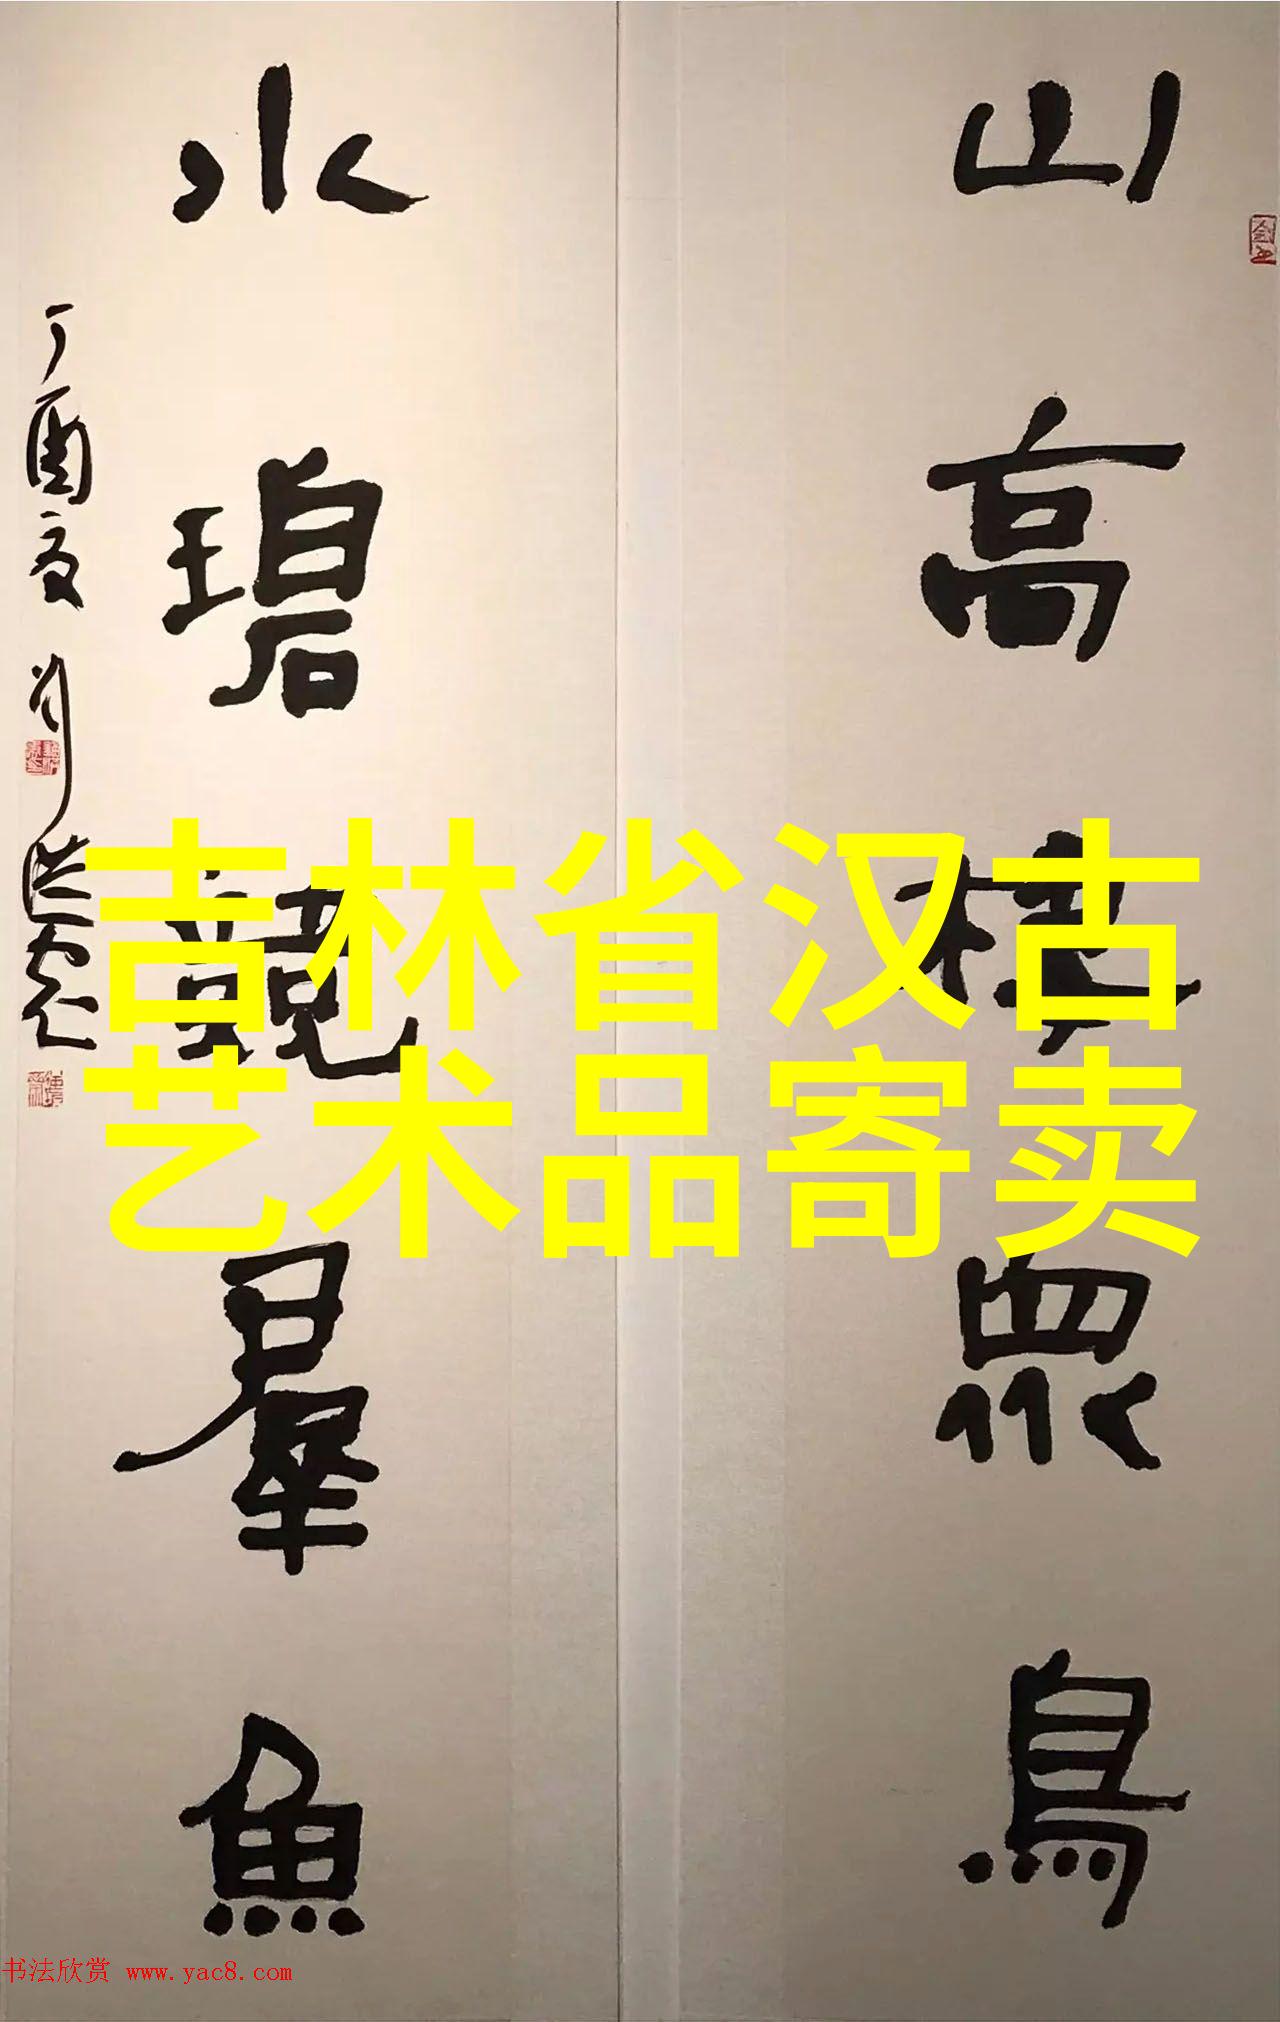 山高棲眾鳥
水碧競羣魚
丁酉夏 洪彪
吉林省汉古
艺术品寄卖
书法欣赏 www.yac8.com